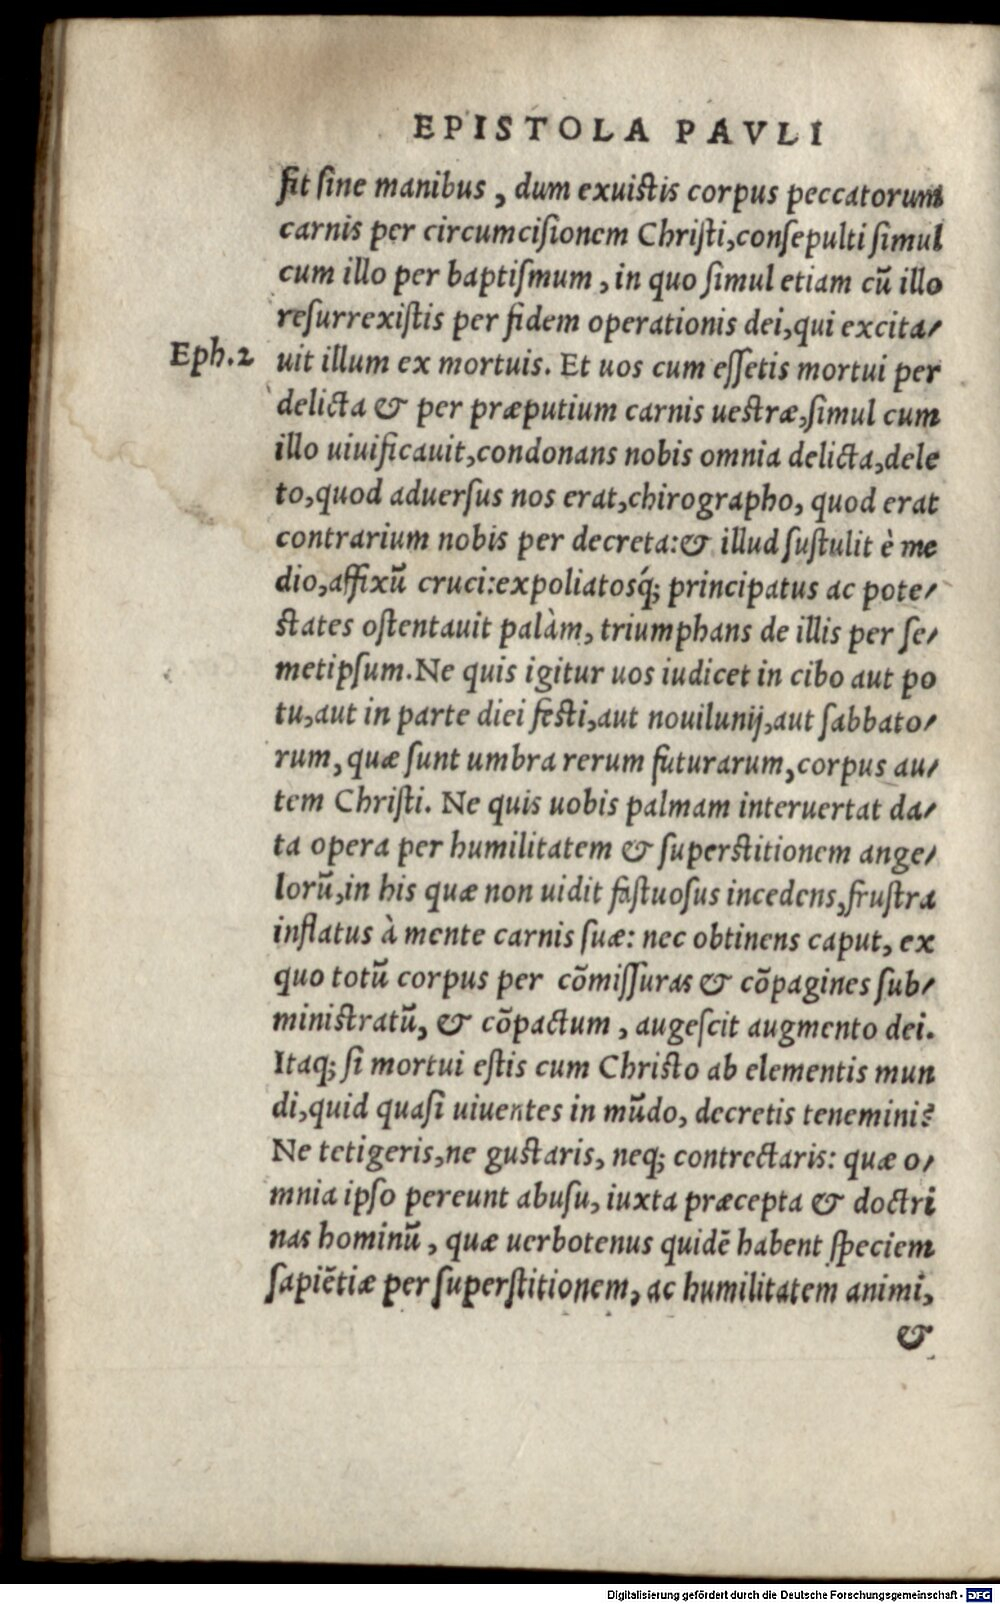 EPISTOLA PAVLI
fit ſine manibus, dum exuiſtis corpus peccatorum
carnis per circumciſionem Chriſti,conſepulti ſimul
cum illo per baptiſmum, in quo ſimul etiam cũ illo
reſurrexiſtis per fidem operationis dei,qui excita/
Eph.2 uit illum ex mortuis. Et uos cum eſſetis mortui per
delicta & per præputium carnis ueſtræ,ſimul cum
illo uiuificauit,condonans nobis omnia delicta,dele
to,quod aduerſus nos erat,chirographo, quod erat
contrarium nobis per decreta:& illud ſuſtulit è me
dio,affixũ cruci:expoliatosq́; principatus ac pote/
ſtates oſtentauit palàm, triumphans de illis per ſe/
metipſum.Ne quis igitur uos iudicet in cibo aut po
tu,aut in parte diei feſti,aut nouilunij,aut ſabbato/
rum, quæ ſunt umbra rerum futurarum,corpus au/
tem Chriſti. Ne quis uobis palmam interuertat da/
ta opera per humilitatem & ſuperſtitionem ange/
lorũ,in his quæ non uidit faſtuoſus incedens,fruſtra
inflatus à mente carnis ſuæ: nec obtinens caput, ex
quo totũ corpus per cõmiſſuras & cõpagines ſub/
miniſtratũ, & cõpactum, augeſcit augmento dei.
Itaq; ſi mortui eſtis cum Chriſto ab elementis mun
di,quid quaſi uiuentes in mũdo, decretis tenemini?
Ne tetigeris,ne guſtaris, neq; contrectaris: quæ o/
mnia ipſo pereunt abuſu, iuxta præcepta & doctri
nas hominũ, quæ uerbotenus quidẽ habent ſpeciem
ſapiẽtiæ per ſuperſtitionem, ac humilitatem animi,
&
Digitalisierung gefördert durch die Deutsche Forschungsgemeinschaft - DFG